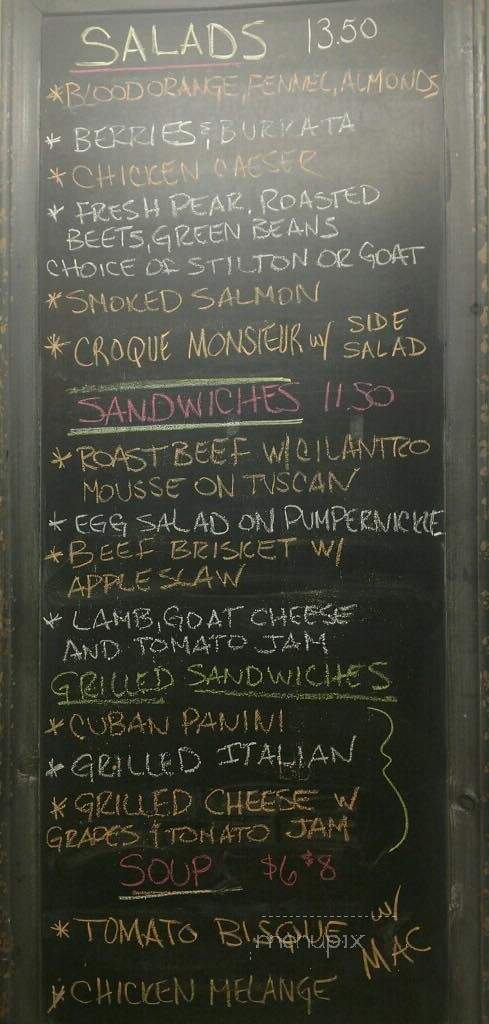 SALADS 13.50
*BLOOD ORANGE, FENNEL, ALMONDS
* BERRIES & BURRATA
* CHICKEN CAESER
* FRESH PEAR, ROASTED
BEETS, GREEN BEANS
CHOICE OF STILTON OR GOAT
* SMOKED SALMON
* CROQUE MONSIEUR W/ SIDE SALAD
SANDWICHES 11.50
* ROAST BEEF W/CILANTRO
MOUSSE ON TUSCAN
* EGG SALAD ON PUMPERNICKLE
* BEEF BRISKET W/
APPLE SLAW
* LAMB, GOAT CHEESE
AND TOMATO JAM
GRILLED SANDWICHES
* CUBAN PANINI
* GRILLED ITALIAN
* GRILLED CHEESE W
GRAPES & TOMATO JAM
SOUP $6 $8
* TOMATO BISQUE W/ MAC
menupix
* CHICKEN MELANGE